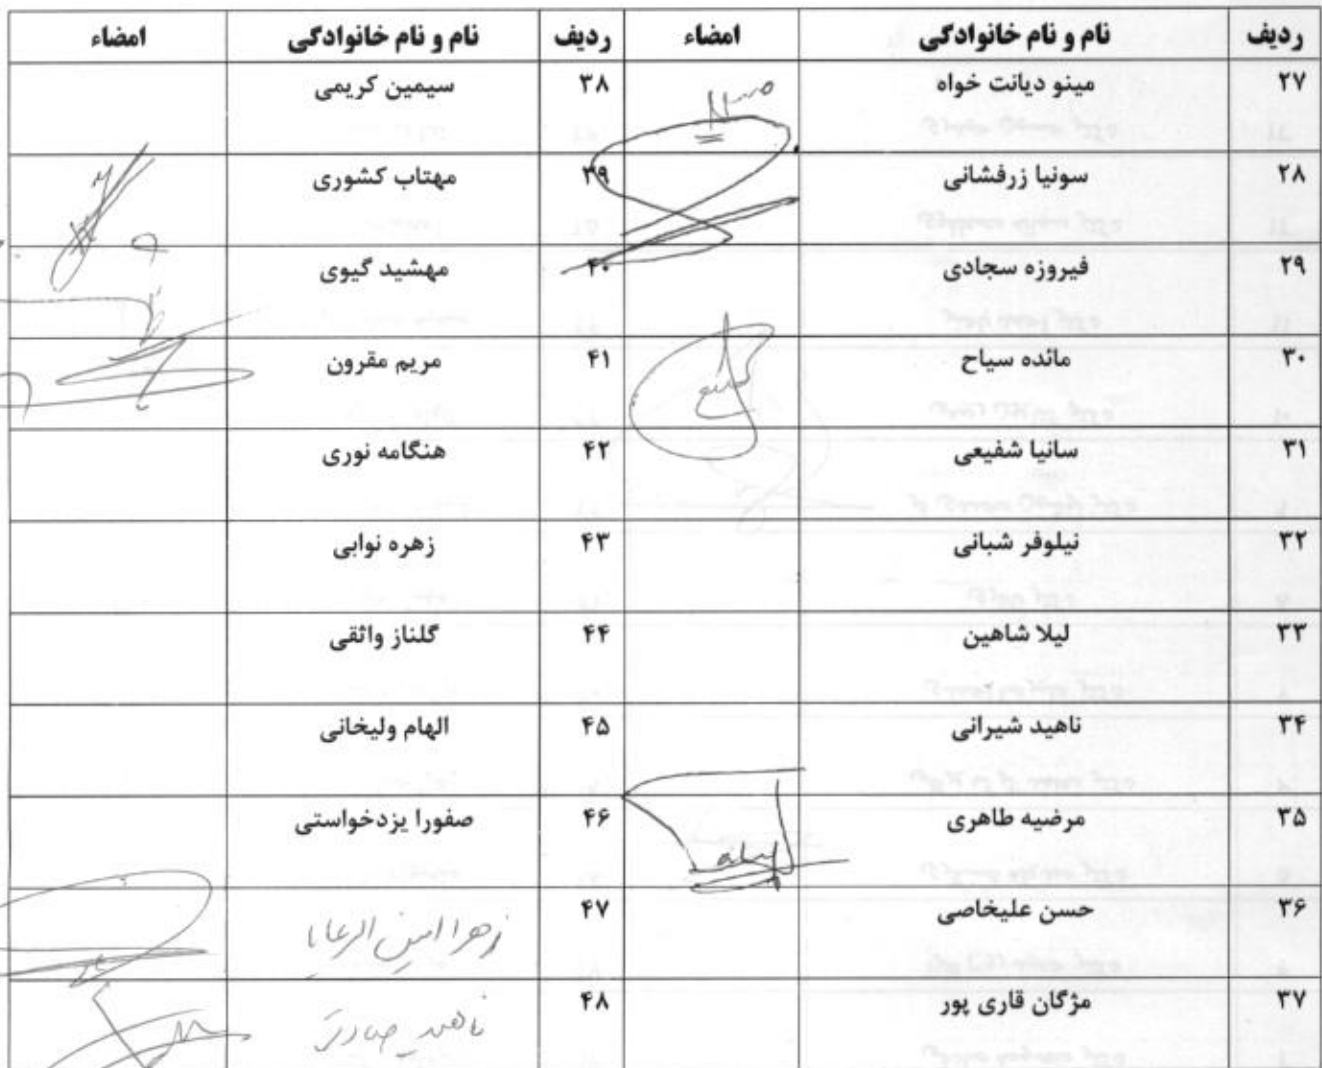 ردیف نام و نام خانوادگی امضاء ردیف نام و نام خانوادگی امضاء
۲۷ مینو دیانت خواه ۳۸ سیمین کریمی
۲۸ سونیا زرفشانی ۳۹ مهتاب کشوری
۲۹ فیروزه سجادی ۴۰ مهشید گیوی
۳۰ مائده سیاح ۴۱ مریم مقرون
۳۱ سانیا شفیعی ۴۲ هنگامه نوری
۳۲ نیلوفر شبانی ۴۳ زهره نوابی
۳۳ لیلا شاهین ۴۴ گلناز واثقی
۳۴ ناهید شیرانی ۴۵ الهام ولیخانی
۳۵ مرضیه طاهری ۴۶ صفورا یزدخواستی
۳۶ حسن علیخاصی ۴۷ زهرا امین الرعایا
۳۷ مژگان قاری پور ۴۸ ناهید صادقی